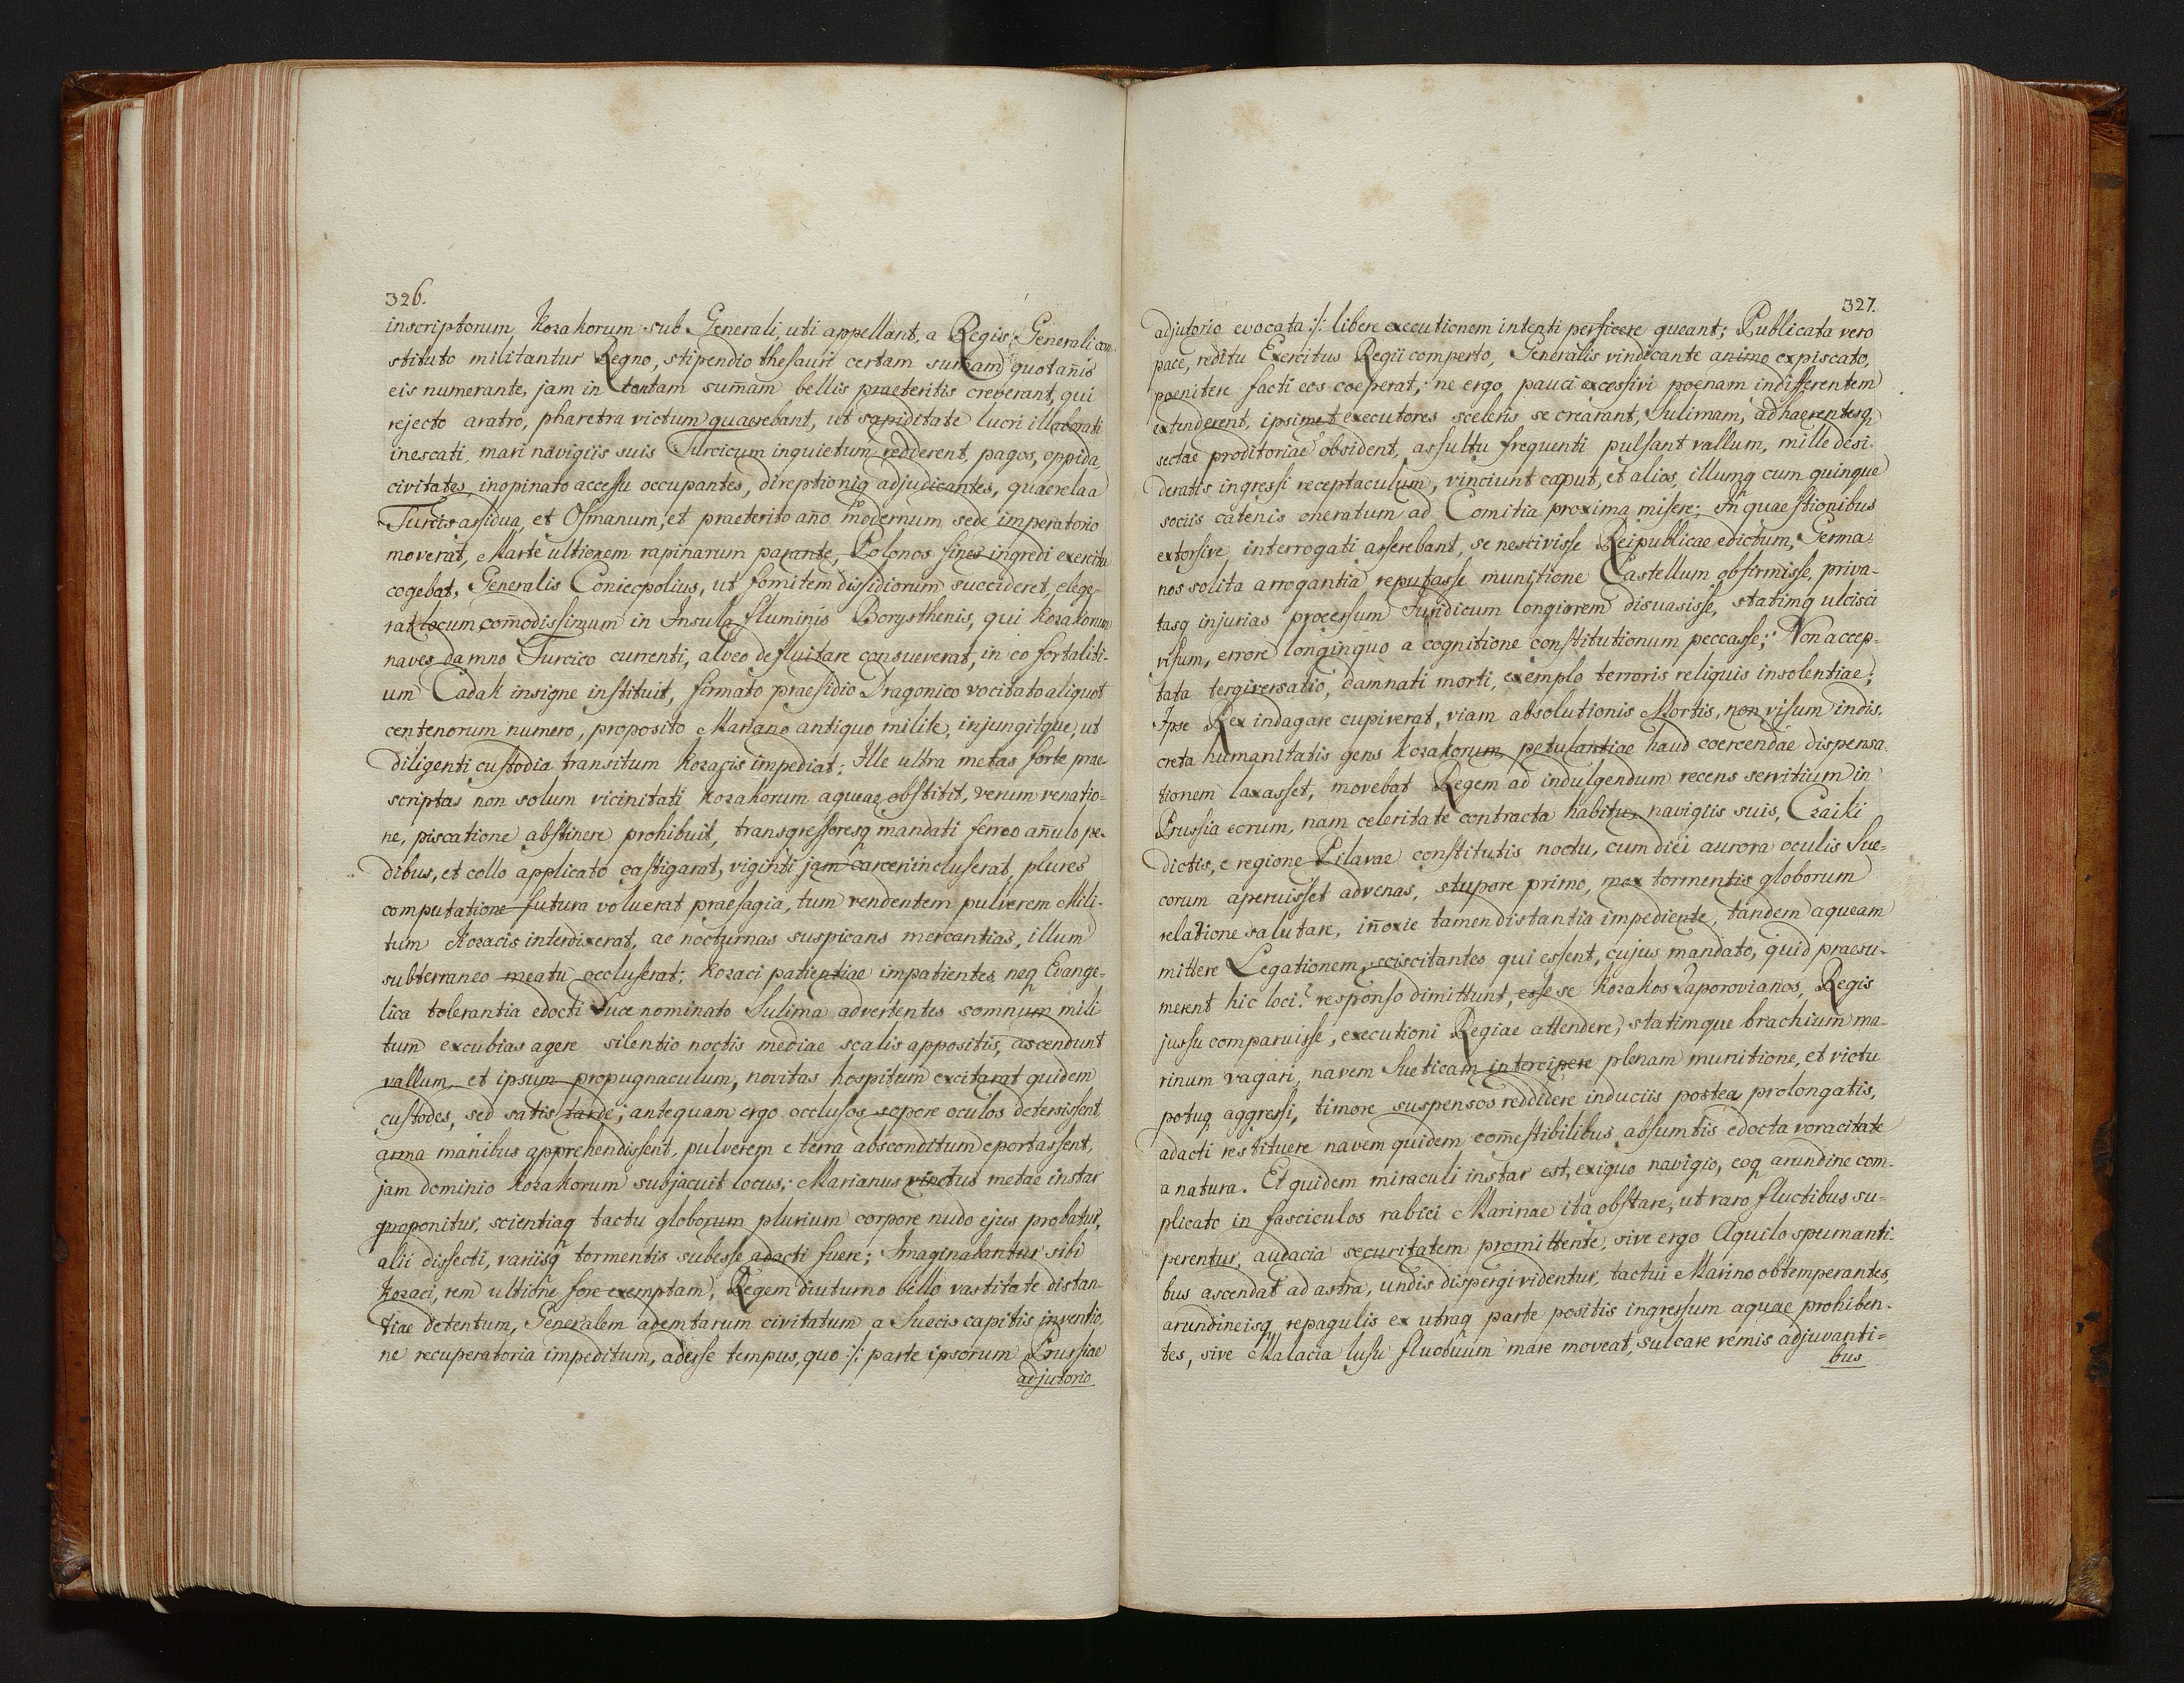 326.
inscriptorum Kozakorum sub Generali, uti appellant, a Regis Generali con-
stituto militantur Regno, stipendio thesauri certam sum̄am quotan̄is
eis numerante, jam in tantam sum̄am bellis praeteritis creverant, qui
rejecto aratro, pharetra victum quaerebant, ut sapiditate lucri illaborati
inescati, mari navigiis suis Turcicum inquietum redderent, pagos, oppida,
civitates, inopinato accessu occupantes, direptioniq adjudicantes, quaerela a
Turcis assidua, et Osmanum, et praeterito an̄o modernum sede imperatorio
moverat, Marte ultionem rapinarum parante, Polonos fines ingredi exercitu
cogebat, Generalis Coniecpolius, ut fomitem dissidiorum succideret, elege-
rat locum com̄odissimum in Insula fluminis Borysthenis, qui Kozakorum
naves damno Turcico currenti, alveo defluitare consueverat, in eo fortaliti-
um Cadak insigne instituit, firmato praesidio Dragonico vocitato aliquot
centenorum numero, proposito Mariano antiquo milite, injungitque, ut
diligenti custodia transitum Kozacis impediat; Ille ultra metas forte prae-
scriptas non solum vicinitati Kozakorum aqueae obstitit, verum venatio-
ne, piscatione abstinere prohibuit, transgressoresq mandati ferreo an̄ulo pe-
dibus, et collo applicato castigarat, viginti jam carceri incluserat, plures
computatione futura voluerat praesagia, tum vendentem pulverem Mili-
tum Kozacis interdixerat, ac nocturnas suspicans mercantias, illum
subterraneo meatu occluserat; Kozaci patientiae impatientes, neq Evange-
lica tolerantia edocti Duce nominato Sulima advertentes somnum mili
tum excubias agere silentio noctis mediae scalis appositis, ascendunt
vallum, et ipsum propugnaculum, novitas hospitum excitarat quidem
custodes, sed satis tarde; antequam ergo occlusos sopore oculos detersissent,
arma manibus apprehendissent, pulverem e terra absconditum eportassent,
jam dominio Kozakorum subjacuit locus; Marianus vinctus metae instar
proponitur, scientiaq tactu globorum plurium corpore nudo ejus probatur,
alii dissecti, variisq tormentis subesse adacti fuere; Imaginabantur sibi
Kozaci, rem ultione fore exemptam, Regem diuturno bello vastitate distan-
tiae detentum, Generalem ademtarum civitatum a Suecis capitis inventio-
ne recuperatoria impeditum, adesse tempus, quo :/: parte ipsorum Prussiae
adjutorio
327.
adjutorio evocata :/: libere executionem intenti perficere queant; Publicata vero
pace, reditu Exercitus Regii comperto, Generalis vindicante animo expiscato,
poenitere facti eos coeperat, ne ergo pauci excessivi poenam indifferentem
extenderent, ipsimet executores sceleris se crearant, Sulimam, adhaerentesq
sectae proditoriae obsident, assultu frequenti pulsant vallum, mille desi-
deratis ingressi receptaculum, vinciunt caput, et alios, illumq cum quinque
sociis catenis oneratum ad Comitia proxima misere; In quaestionibus
extorsive interrogati asserebant, se nescivisse Reipublicae edictum, Germa-
nos solita arrogantia reputasse munitione Castellum obfirmisse, priva-
tasq injurias processum Juridicum longiorem disuasisse, statimq ulcisci
visum, errore longinquo a cognitione constitutionum peccasse; Non accep-
tata tergiversatio, damnati morti, exemplo terroris reliquis insolentiae;
Ipse Rex indagare cupiverat, viam absolutionis Mortis, non visum indis-
creta humanitatis gens Kozakorum petulantiae haud coercendae dispensa-
tionem laxasset, movebat Regem ad indulgendum recens servitium in
Prussia eorum, nam celeritate contracta habitu, navigiis suis, Czaiki
dictis, e regione Pilavae constitutis noctu, cum diei aurora oculis Sue-
corum aperuisset advenas, stupore primo, mox tormentis globorum
relatione salutare, in̄oxie tamen distantia impediente, tandem aqueam
mittere Legationem, sciscitantes qui essent, cujus mandato, quid praesu-
merent hic loci? responso dimittunt, esse se Kozakos Zaporovianos, Regis
jussu comparuisse, executioni Regiae attendere, statimque brachium ma-
rinum vagari, navem Sueticam intercipere plenam munitione, et victu
potuq aggressi, timore suspensos reddidere induciis postea prolongatis,
adacti restituere navem quidem com̄estibilibus absumtis edocta voracitate
a natura. Et quidem miraculi instar est, exiguo navigio, eoq arundine com-
plicato in fasciculos rabiei Marinae ita obstare, ut raro fluctibus su-
perentur, audacia securitatem promittente, sive ergo Aquilo spumanti-
bus ascendat ad astra, undis dispergi videntur, tactui Marino obtemperantes,
arundineisq repagulis ex utraq parte positis ingressum aquae prohiben-
tes, sive Malacia lusu fluctuum mare moveat, sulcare remis adjuvanti=
bus